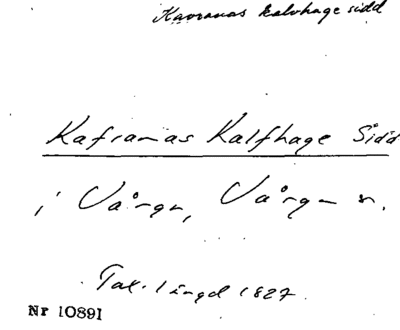 Kavranas kalvhage sidd
Kaframas Kalfhage Sidd
i Vårgn, Vårgn sn.
Tax. längd 1827.
Nr 10891